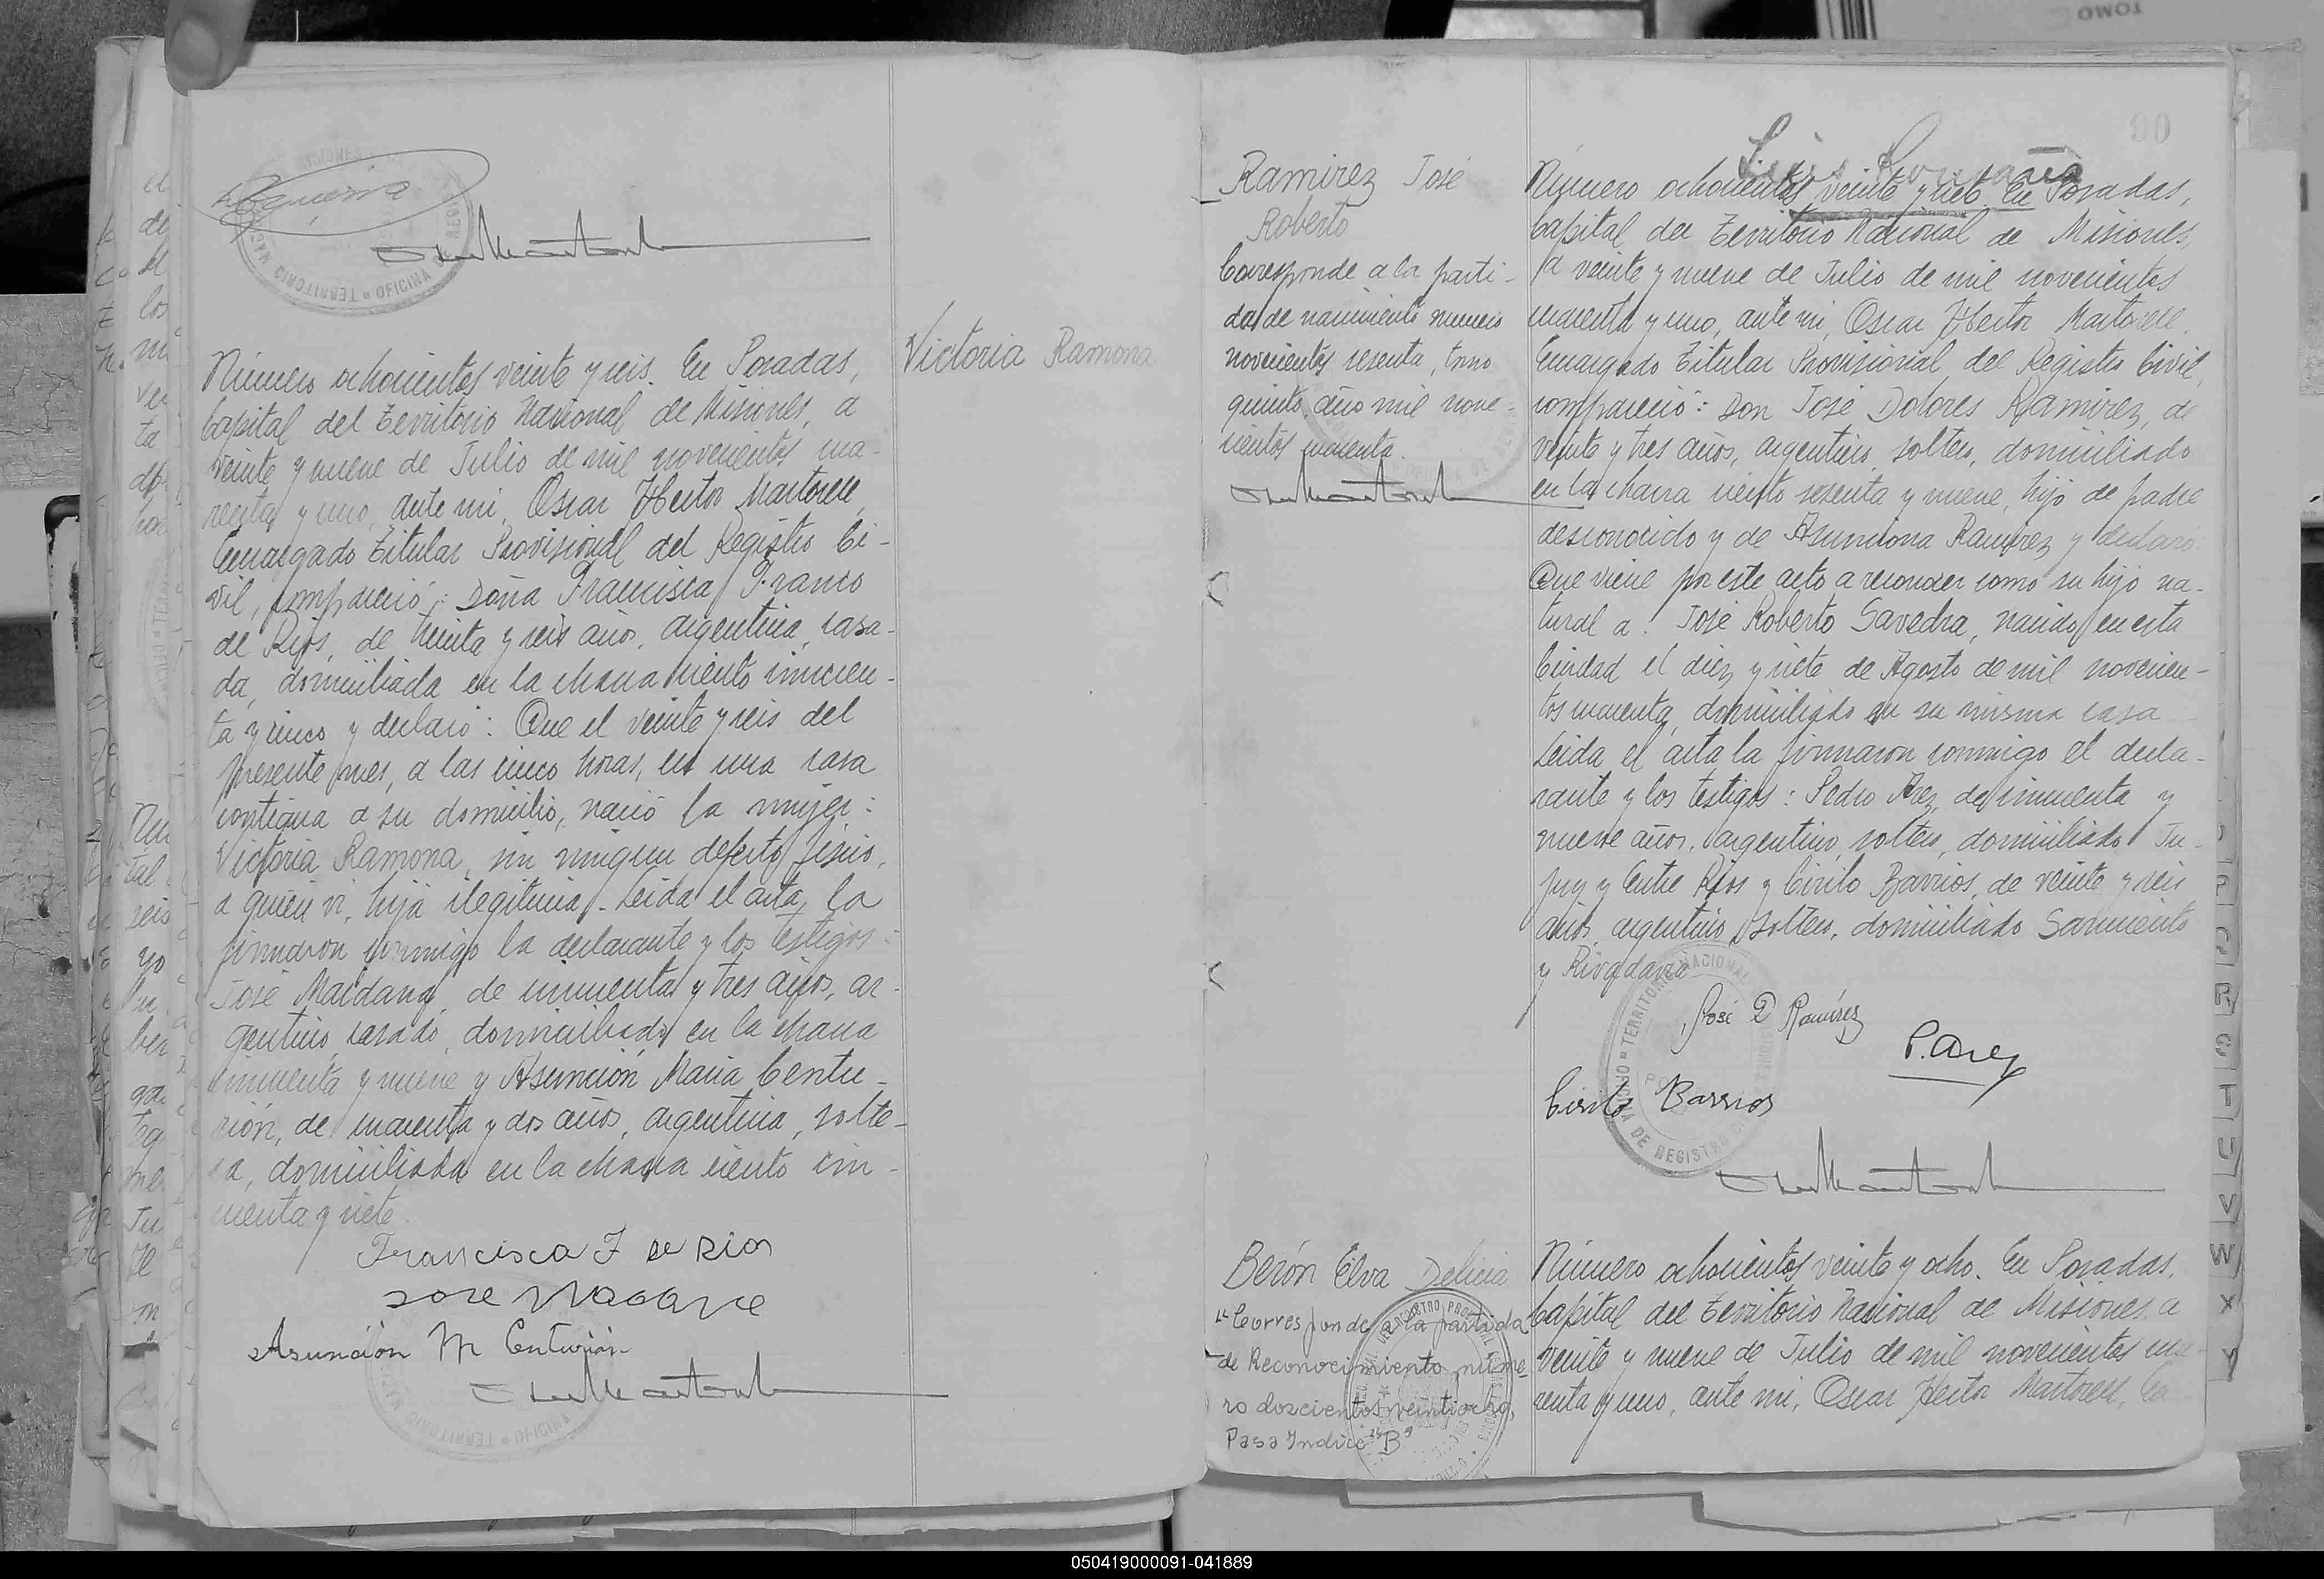 TOMO
Número ochocientos veinte y seis. En Posadas,
Capital del Territorio Nacional de Misiones, a
veinte y nueve de Julio de mil novecientos cua-
renta y uno, ante mi, Oscar Hector Martorell,
Encargado Titular Provisional del Registro Ci-
vil, compareció: Doña Francisca Franco
de Rios, de treinta y seis años, argentina, casa-
da, domiciliada en la chacra ciento cincuen-
ta y cinco y declaró: Que el veinte y seis del
presente mes, a las cinco horas, en una casa
contigua a su domicilio, nació la mujer:
Victoria Ramona, sin ningun defecto fisico,
a quien vi, hija ilegitima.- Leida el acta, la
firmaron conmigo la declarante y los testigos:
José Maidana, de cincuenta y tres años, ar-
gentino, casado, domiciliado en la chacra
cincuenta y nueve y Asunción Maria Centu-
rión, de cuarenta y dos años, argentina, solte-
ra, domiciliada en la chacra ciento cin-
cuenta y siete.
Francisca F de Rios
Jose
Asunción M Centurión
Victoria Ramona
90
Ramirez José
Roberto
Corresponde a la parti-
da de nacimiento numero
novecientos sesenta, tomo
quinto, año mil nove-
cientos cuarenta.
Número ochocientos veinte y siete. En Posadas,
Capital del Territorio Nacional de Misiones,
a veinte y nueve de Julio de mil novecientos
cuarenta y uno, ante mi, Oscar Hector Martorell,
Encargado Titular Provisional del Registro Civil,
compareció: Don José Dolores Ramirez, de
veinte y tres años, argentino, soltero, domiciliado
en la chacra ciento sesenta y nueve, hijo de padre
desconocido y de Asunciona Ramirez y declaró:
Que viene por este acto a reconocer como su hijo na-
tural a: José Roberto Savedra, nacido en esta
Ciudad el diez y siete de Agosto de mil novecien-
tos cuarenta, domiciliado en su misma casa.
Leida el acta la firmaron conmigo el decla-
rante y los testigos: Pedro Arez, de cincuenta y
nueve años, argentino, soltero, domiciliado Ju-
juy y Entre Rios y Cirilo Barrios, de veinte y seis
años, argentino, soltero, domiciliado Sarmiento
y Rivadavia
José D Ramírez
P. Arez
Cirilo Barrios
Berón Elva Delicia
"Corresponde a la partida
de Reconocimiento núme-
ro doscientos veintiocho,
Pasa Indice "B"
Número ochocientos veinte y ocho. En Posadas,
Capital del Territorio Nacional de Misiones, a
veinte y nueve de Julio de mil novecientos cua-
renta y uno, ante mi, Oscar Hector Martorell, En
R
T
U
V
W
X
Y
050419000091-041889